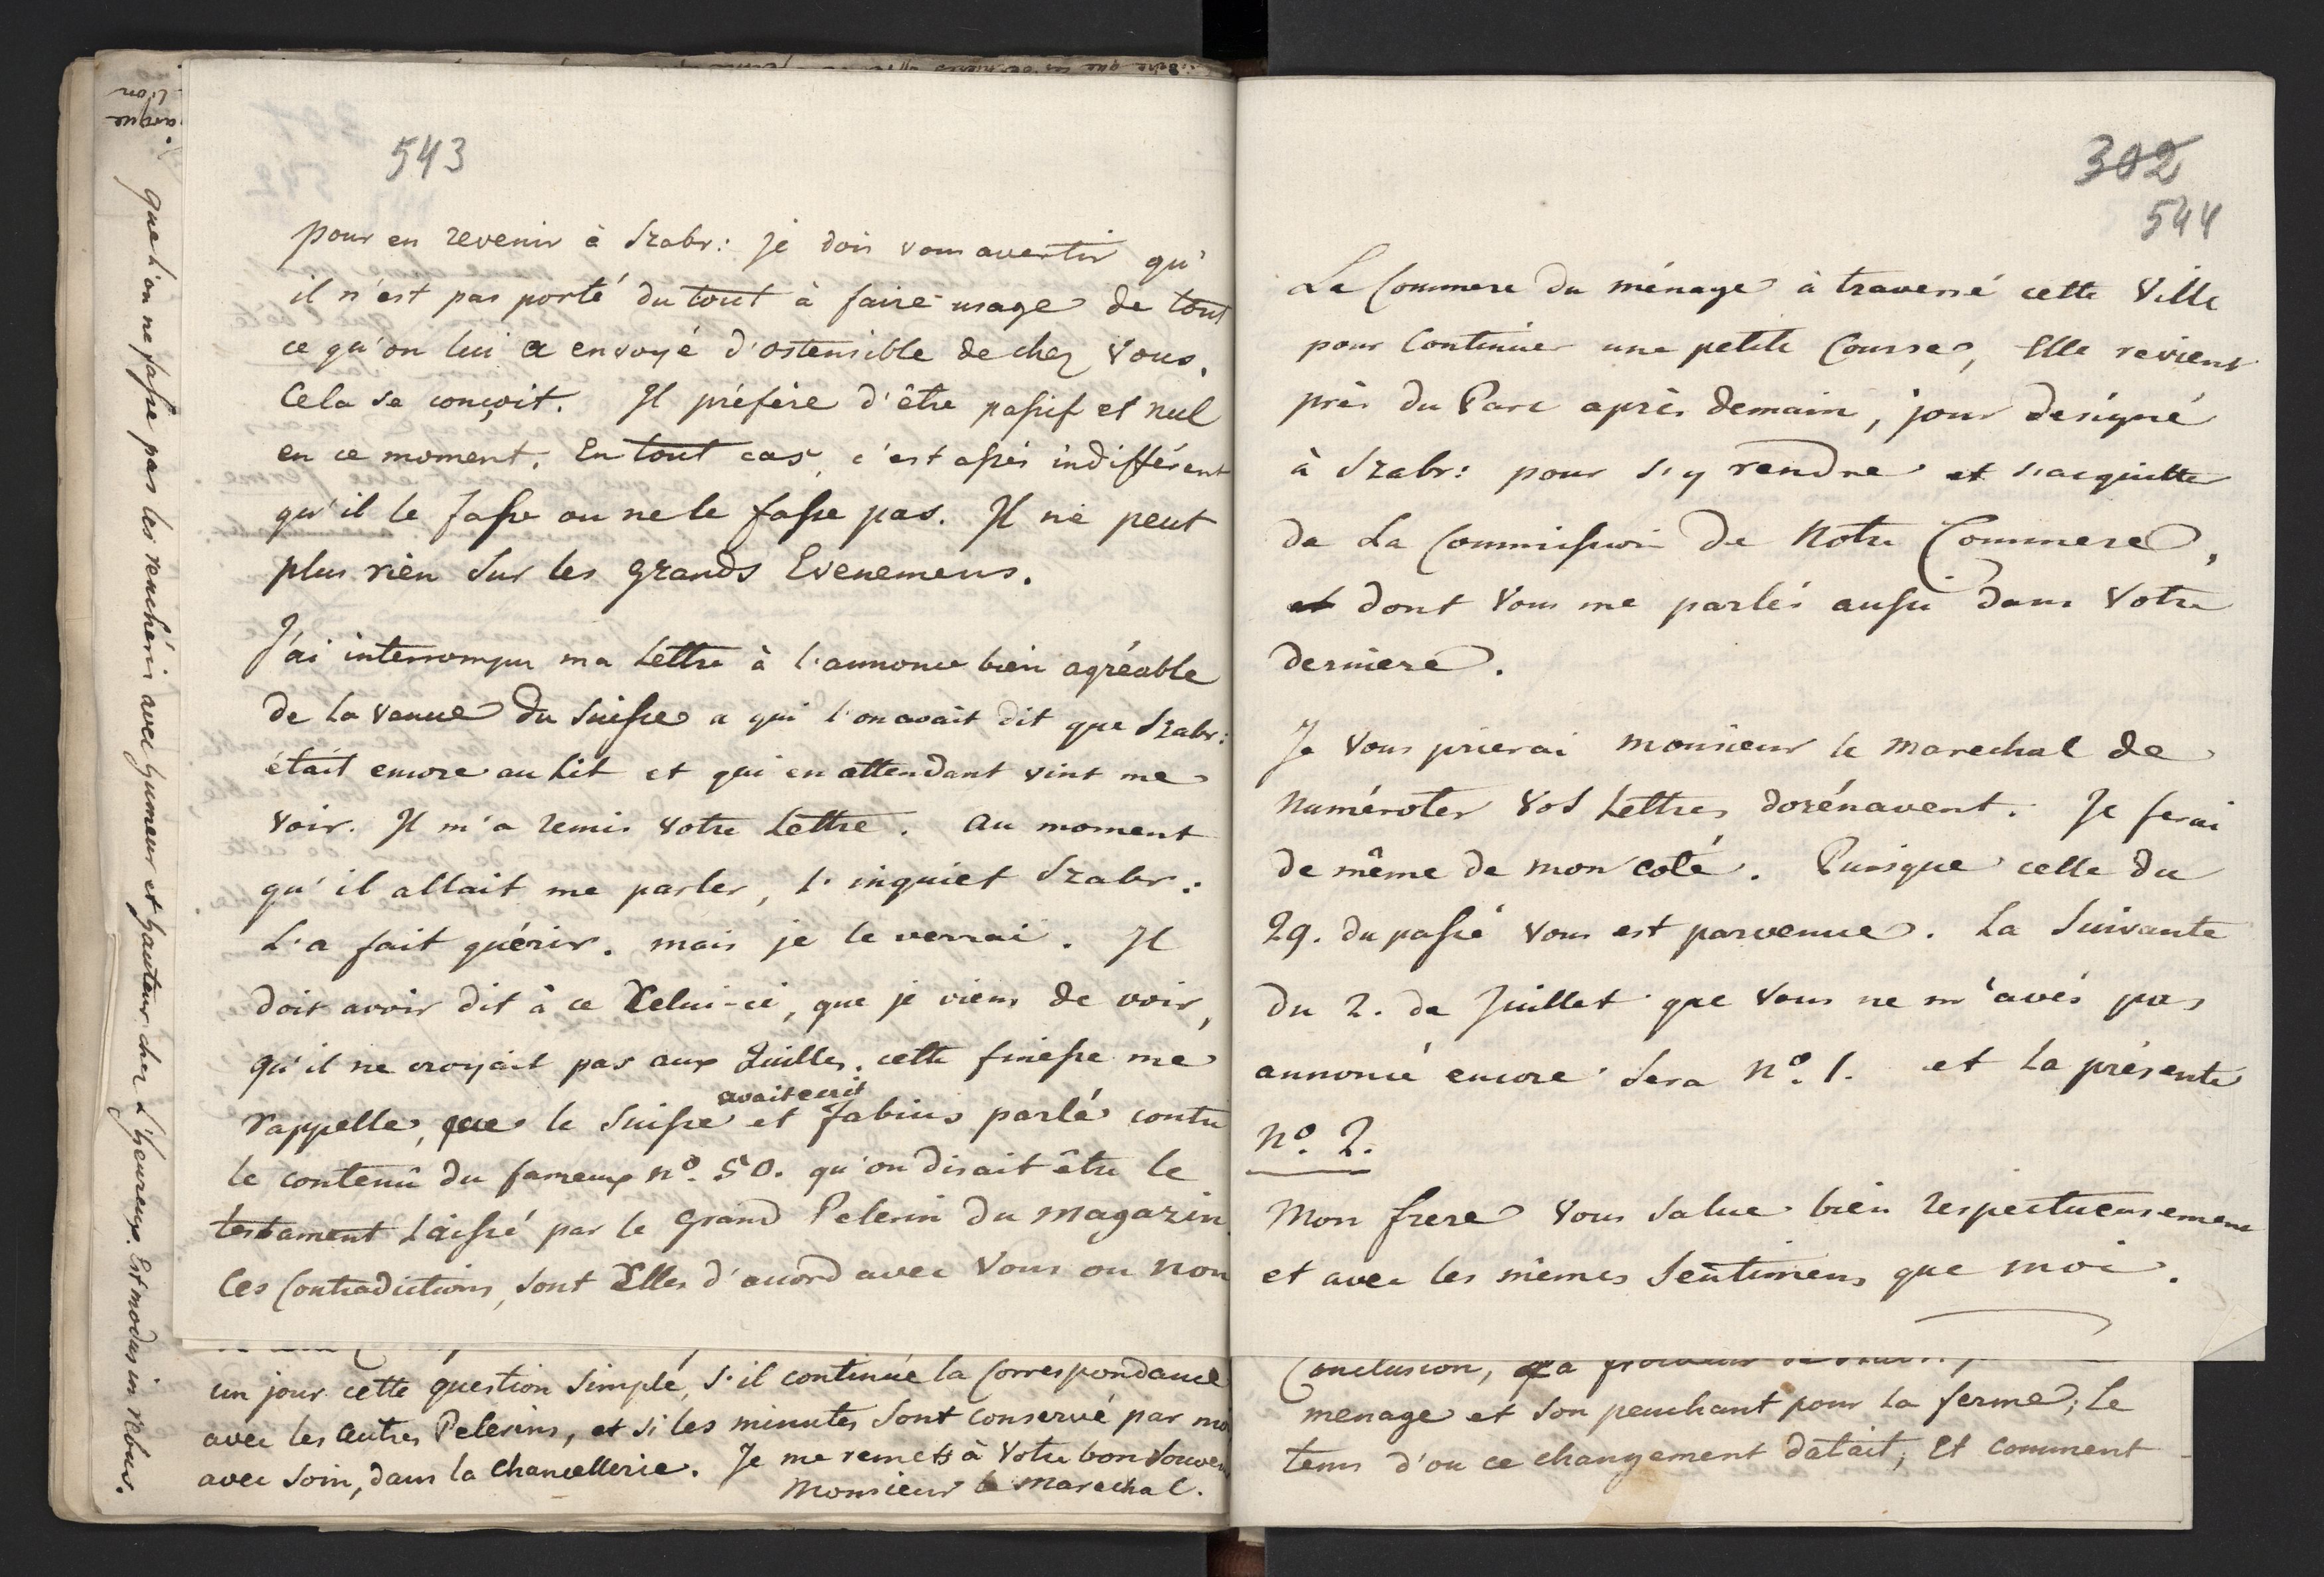 543
pour en revenir à Szabr: je dois vous avertir qu'
il n'est pas porté du tout à faire usage de tout
ce qu'on lui a envoyé d'ostensible de chez Vous.
Cela se conçoit. Il préfère d'être passif et nul
en ce moment. En tout cas, c'est assés indifférent
qu'il le fasse ou ne le fasse pas. Il ne peut
plus rien sur les grands Evenemens.
J'ai interrompu ma Lettre à l'annonce bien agréable
de la venue du Suisse a qui l'on avait dit que Szabr:
était encore au Lit et qui en attendant vint me
voir. Il m'a remis votre Lettre. au moment
qu'il allait me parler, l'inquiet Szabr:
L'a fait quérir. mais je le verrai. Il
doit avoir dit à ce Celui-ci, que je viens de voir,
qu'il ne croyait pas aux Juilles. cette finesse me
rappelle, que le Suisse avait ecrit et Fabius parlé contre
le contenû du fameux nº. 50. qu'on disait être le
testament Laissé par le grand Pelerin du magazin
Ces Contradictions, sont Elles d'acord avec Vous ou non
un jour cette question simple, s'il continuë la Correspondance
avec les autres Pelerins, et si les minutes sont conservé par
avec soin, dans la Chancellerie. Je me remets à Votre bon
Monsieur le Marechal.
que l'on ne fasse pas les renchéris avec humeur et hauteur cher L'heureux. Est modus in rebus.
302
544
La Commere du ménage à traversé cette Ville
pour Continuer une petite Course, Elle revient
près du Parc après demain, jour designé
à Szabr: pour s'y rendre et s'acquitter
de La Commission de Notre Commere,
et dont Vous me parlés aussi dans Votre
derniere.
Je Vous prierai Monsieur le Marechal de
Numéroter Vos Lettres dorénavent. Je ferai
de même de mon coté. Puisque celle du
29. du passé Vous est parvenue. La Suivante
du 2. de Juillet que Vous ne m'avés pas
annoncé encore sera nº. 1. et la présente
nº. 2.
Mon frere Vous salue bien respectueusement
et avec les mêmes Sentimens que moi.
Conclusion,
menage et son penchant pour la ferme; le
tems d'ou ce changement datait; et comment